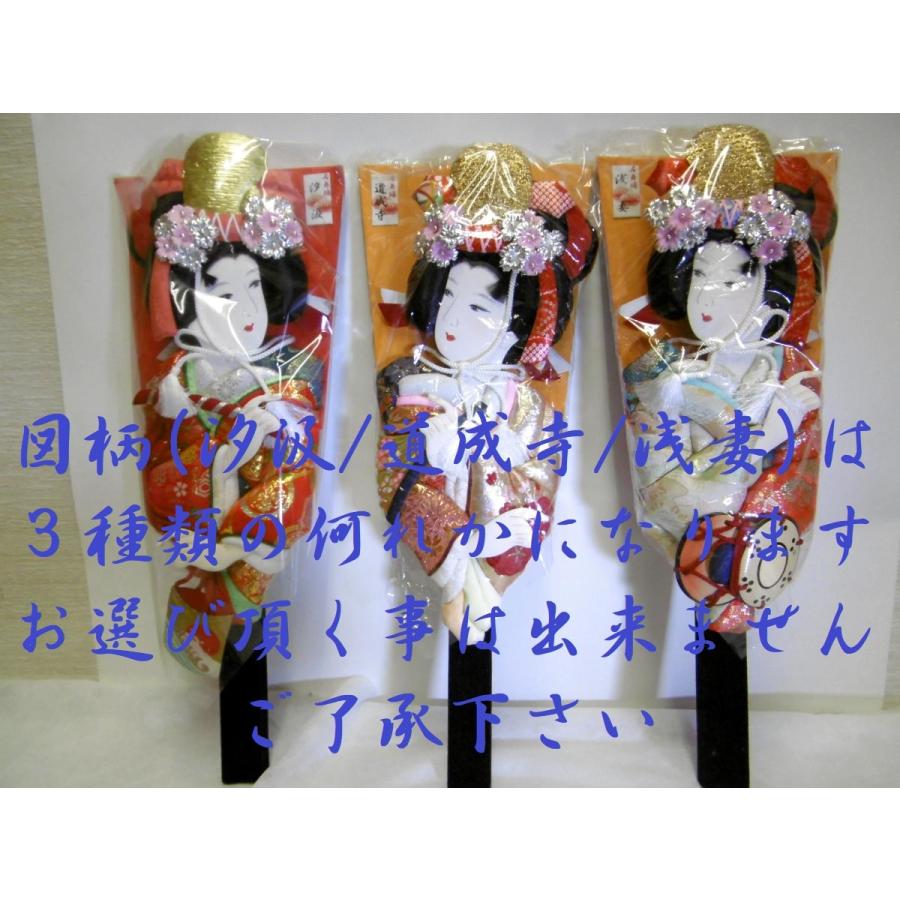 汐汲
道成寺
浅妻
図柄(汐汲/道成寺/浅妻)は
3種類の何れかになります
お選び頂く事は出来ません
ご了承下さい